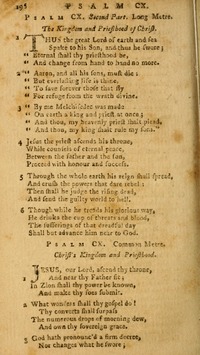 P S A L M CX.
P S A L M CX. Second Part. Long Metre.
The Kingdom and Priesthood of Christ.
1 THUS the great Lord of earth and sea
Spoke to his Son, and thus he swore;
“ Eternal shall thy priesthood be,
“ And change from hand to hand no more.
2 “ Aaron, and all his sons, must die:
“ But everlasting life is thine,
“ To save forever those that fly
“ For refuge from the wrath divine.
3 “ By me Melchisedec was made
“ On earth a king and priest at once;
“ And thou, my heavenly priest shalt plead,
“ And thou, my king shalt rule my sons.”
4 Jesus the priest ascends his throne,
While counsels of eternal peace,
Between the Father and the Son,
Proceed with honour and success.
5 Through the whole earth his reign shall spread,
And crush the powers that dare rebel:
Then shall he judge the rising dead,
And send the guilty world to hell.
6 Though while he treads his glorious way,
He drinks the cup of threats and blood,
The sufferings of that dreadful day
Shall but advance him near to God.
P S A L M CX. Common Metre.
Christ's Kingdom and Priesthood.
1 JESUS, our Lord, ascend thy throne,
And near thy Father sit;
In Zion shall thy power be known,
And make thy foes submit.
2 What wonders shall thy gospel do!
Thy converts shall surpass
The numerous drops of morning dew,
And own thy sovereign grace.
3 God hath pronounc'd a firm decree,
Nor changes what he swore;